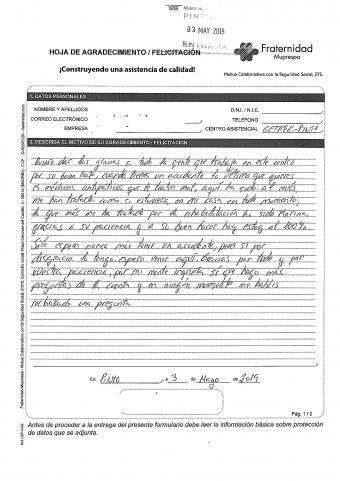 Muprespa
PINTO
03 MAY 2019
HOJA DE AGRADECIMIENTO / FELICITACIÓN
Fraternidad
Muprespa
¡Construyendo una asistencia de calidad!
Mutua Colaboradora con la Seguridad Social, 275.
1. DATOS PERSONALES
NOMBRE Y APELLIDOS
D.N.I. / N.I.E.
CORREO ELECTRÓNICO
TELÉFONO
EMPRESA
CENTRO ASISTENCIAL GETAFE-PINTO
2. DESCRIBA EL MOTIVO DE SU AGRADECIMIENTO / FELICITACIÓN
dar las gracias a toda la gente que trabaja en este centro
por su buen trato, cuando tienes un accidente lo último que quieres
es médicos antipáticos que te traten mal, aquí ha sido al revés,
me han tratado como si estuviera en mi casa en todo momento,
la que más me ha tratado por la rehabilitación ha sido Marina,
gracias a su paciencia y a su buen hacer hoy estoy al 100%.
Solo espero nunca más tener un accidente, pero si por
desgracia lo tengo, espero venir aquí. Gracias por todo y por
vuestra paciencia, por mi mente inquieta sé que hago más
preguntas de la cuenta y en ningún momento me habéis
rechazado una pregunta.
En PINTO, a 3 de Mayo de 2019
Pág. 1 / 2
Antes de proceder a la entrega del presente formulario debe leer la información básica sobre protección
de datos que se adjunta.